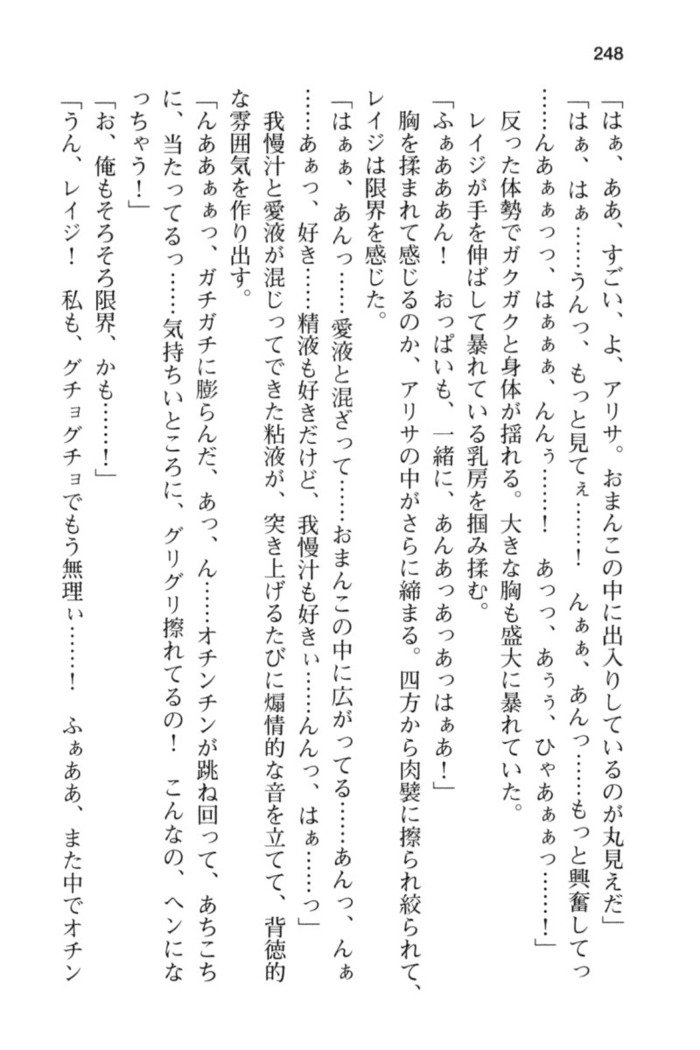 248
「はぁ、ああ、すごい、よ、アリサ。おまんこの中に出入りしているのが丸見えだ」
「はぁ、はぁ……うんっ、もっと見てぇ……！　んぁぁ、あんっ……もっと興奮してっ
……んあぁぁっっ、はぁぁぁ、んんぅ……！　あっっ、あぅぅ、ひゃあぁぁっ……！」
反った体勢でガクガクと身体が揺れる。大きな胸も盛大に暴れていた。
レイジが手を伸ばして暴れている乳房を掴み揉む。
「ふぁあああん！　おっぱいも、一緒に、あんあっあっあっはぁあ！」
胸を揉まれて感じるのか、アリサの中がさらに締まる。四方から肉襞に擦られ絞られて、
レイジは限界を感じた。
「はぁぁ、あんっ……愛液と混ざって……おまんこの中に広がってる……あんっ、んぁ
……あぁっ、好き……精液も好きだけど、我慢汁も好きぃ……んんっ、はぁ……っ」
我慢汁と愛液が混じってできた粘液が、突き上げるたびに煽情的な音を立てて、背徳的
な雰囲気を作り出す。
「んああぁぁっ、ガチガチに膨らんだ、あっ、ん……オチンチンが跳ね回って、あちこち
に、当たってるっ……気持ちいところに、グリグリ擦れてるの！　こんなの、ヘンにな
っちゃう！」
「お、俺もそろそろ限界、かも……！」
「うん、レイジ！　私も、グチョグチョでもう無理ぃ……！　ふぁああ、また中でオチン